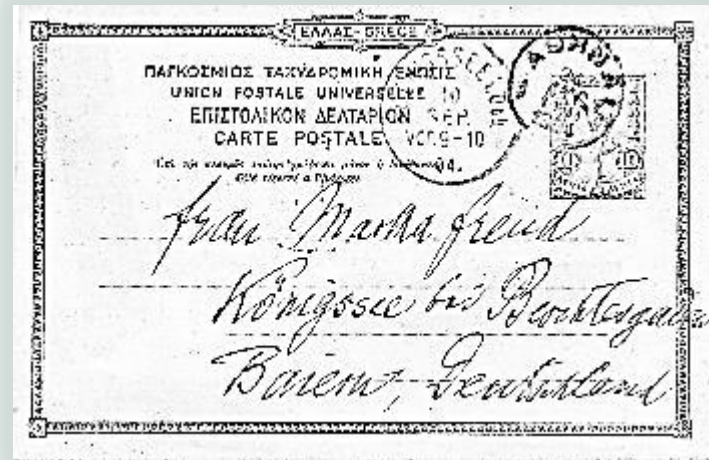 ΕΛΛΑΣ-GRECE
ΠΑΓΚΟΣΜΙΟΣ ΤΑΧΥΔΡΟΜΙΚΗ ΕΝΩΣΙΣ
UNION POSTALE UNIVERSELLE
ΕΠΙΣΤΟΛΙΚΟΝ ΔΕΛΤΑΡΙΟΝ
CARTE POSTALE
10
SEP.
VOR 9-10
04.
Frau Martha Freud
Königssee bei Berchtesgaden
Baiern, Deutschland